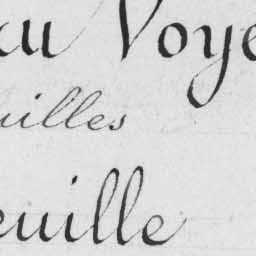 au Voye
uilles
euille